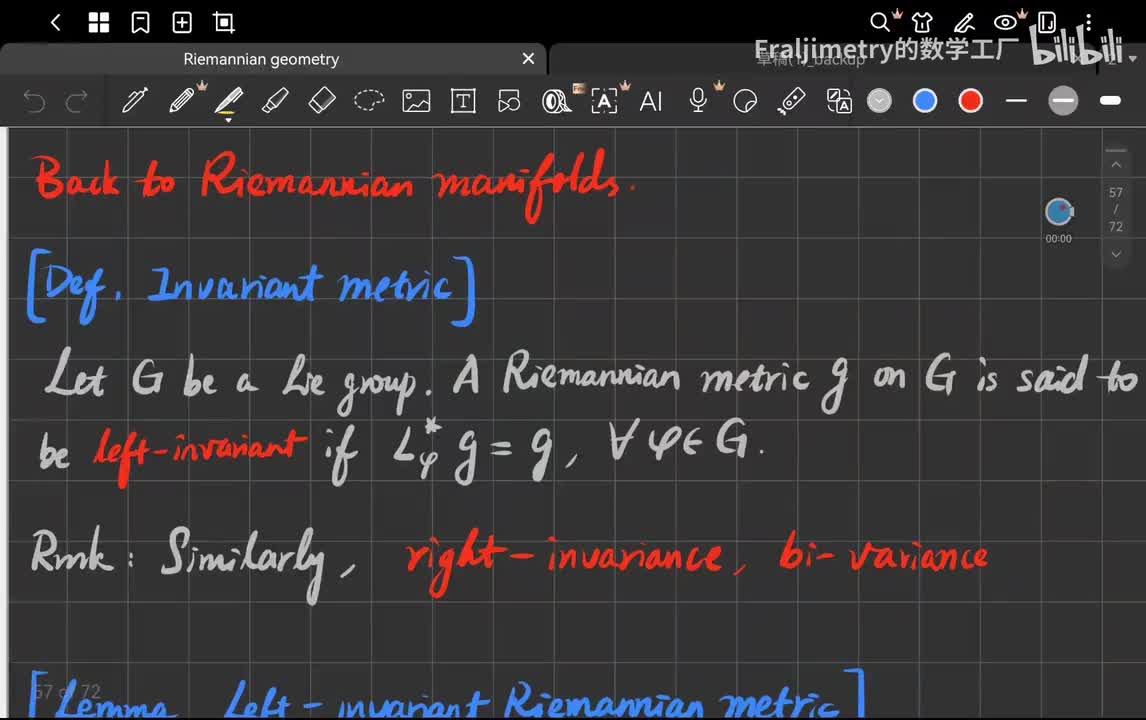 Fraljimetry的数学工厂 bilibili
Riemannian geometry
草稿(1)_backup
Back to Riemannian manifolds.
57
/
72
00:00
[Def. Invariant metric]
Let G be a Lie group. A Riemannian metric g on G is said to
be left-invariant if L*φ g = g, ∀ φ ∈ G.
Rmk: Similarly, right-invariance, bi-variance
57 of 72
[Lemma Left-invariant Riemannian metric]